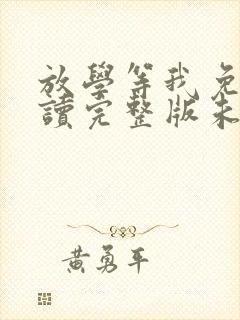 放學等我免
讀完整版未
黃勇平